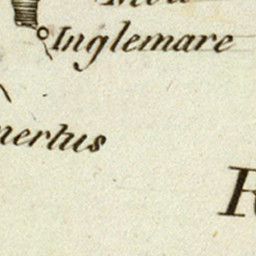 Inglemare
nertus
R